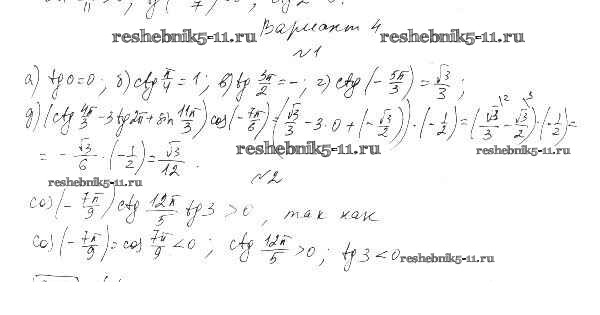 Вариант 4
reshebnik5-11.ru reshebnik5-11.ru
№1
а) tg0=0; б) ctg π/4 = 1; в) tg 3π/2 = –; г) ctg(-5π/3) = √3/3;
д) (ctg 4π/3 - 3tg2π + sin 11π/3) cos(-7π/6) = (√3/3 - 3·0 + (-√3/2))·(-1/2) = (√3/3 - √3/2)·(-1/2) =
reshebnik5-11.ru reshebnik5-11.ru
= -√3/6 · (-1/2) = √3/12.
reshebnik5-11.ru
№2
cos(-7π/9) ctg 12π/5 tg 3 > 0, так как
cos(-7π/9) = cos 7π/9 < 0; ctg 12π/5 > 0; tg 3 < 0
reshebnik5-11.ru